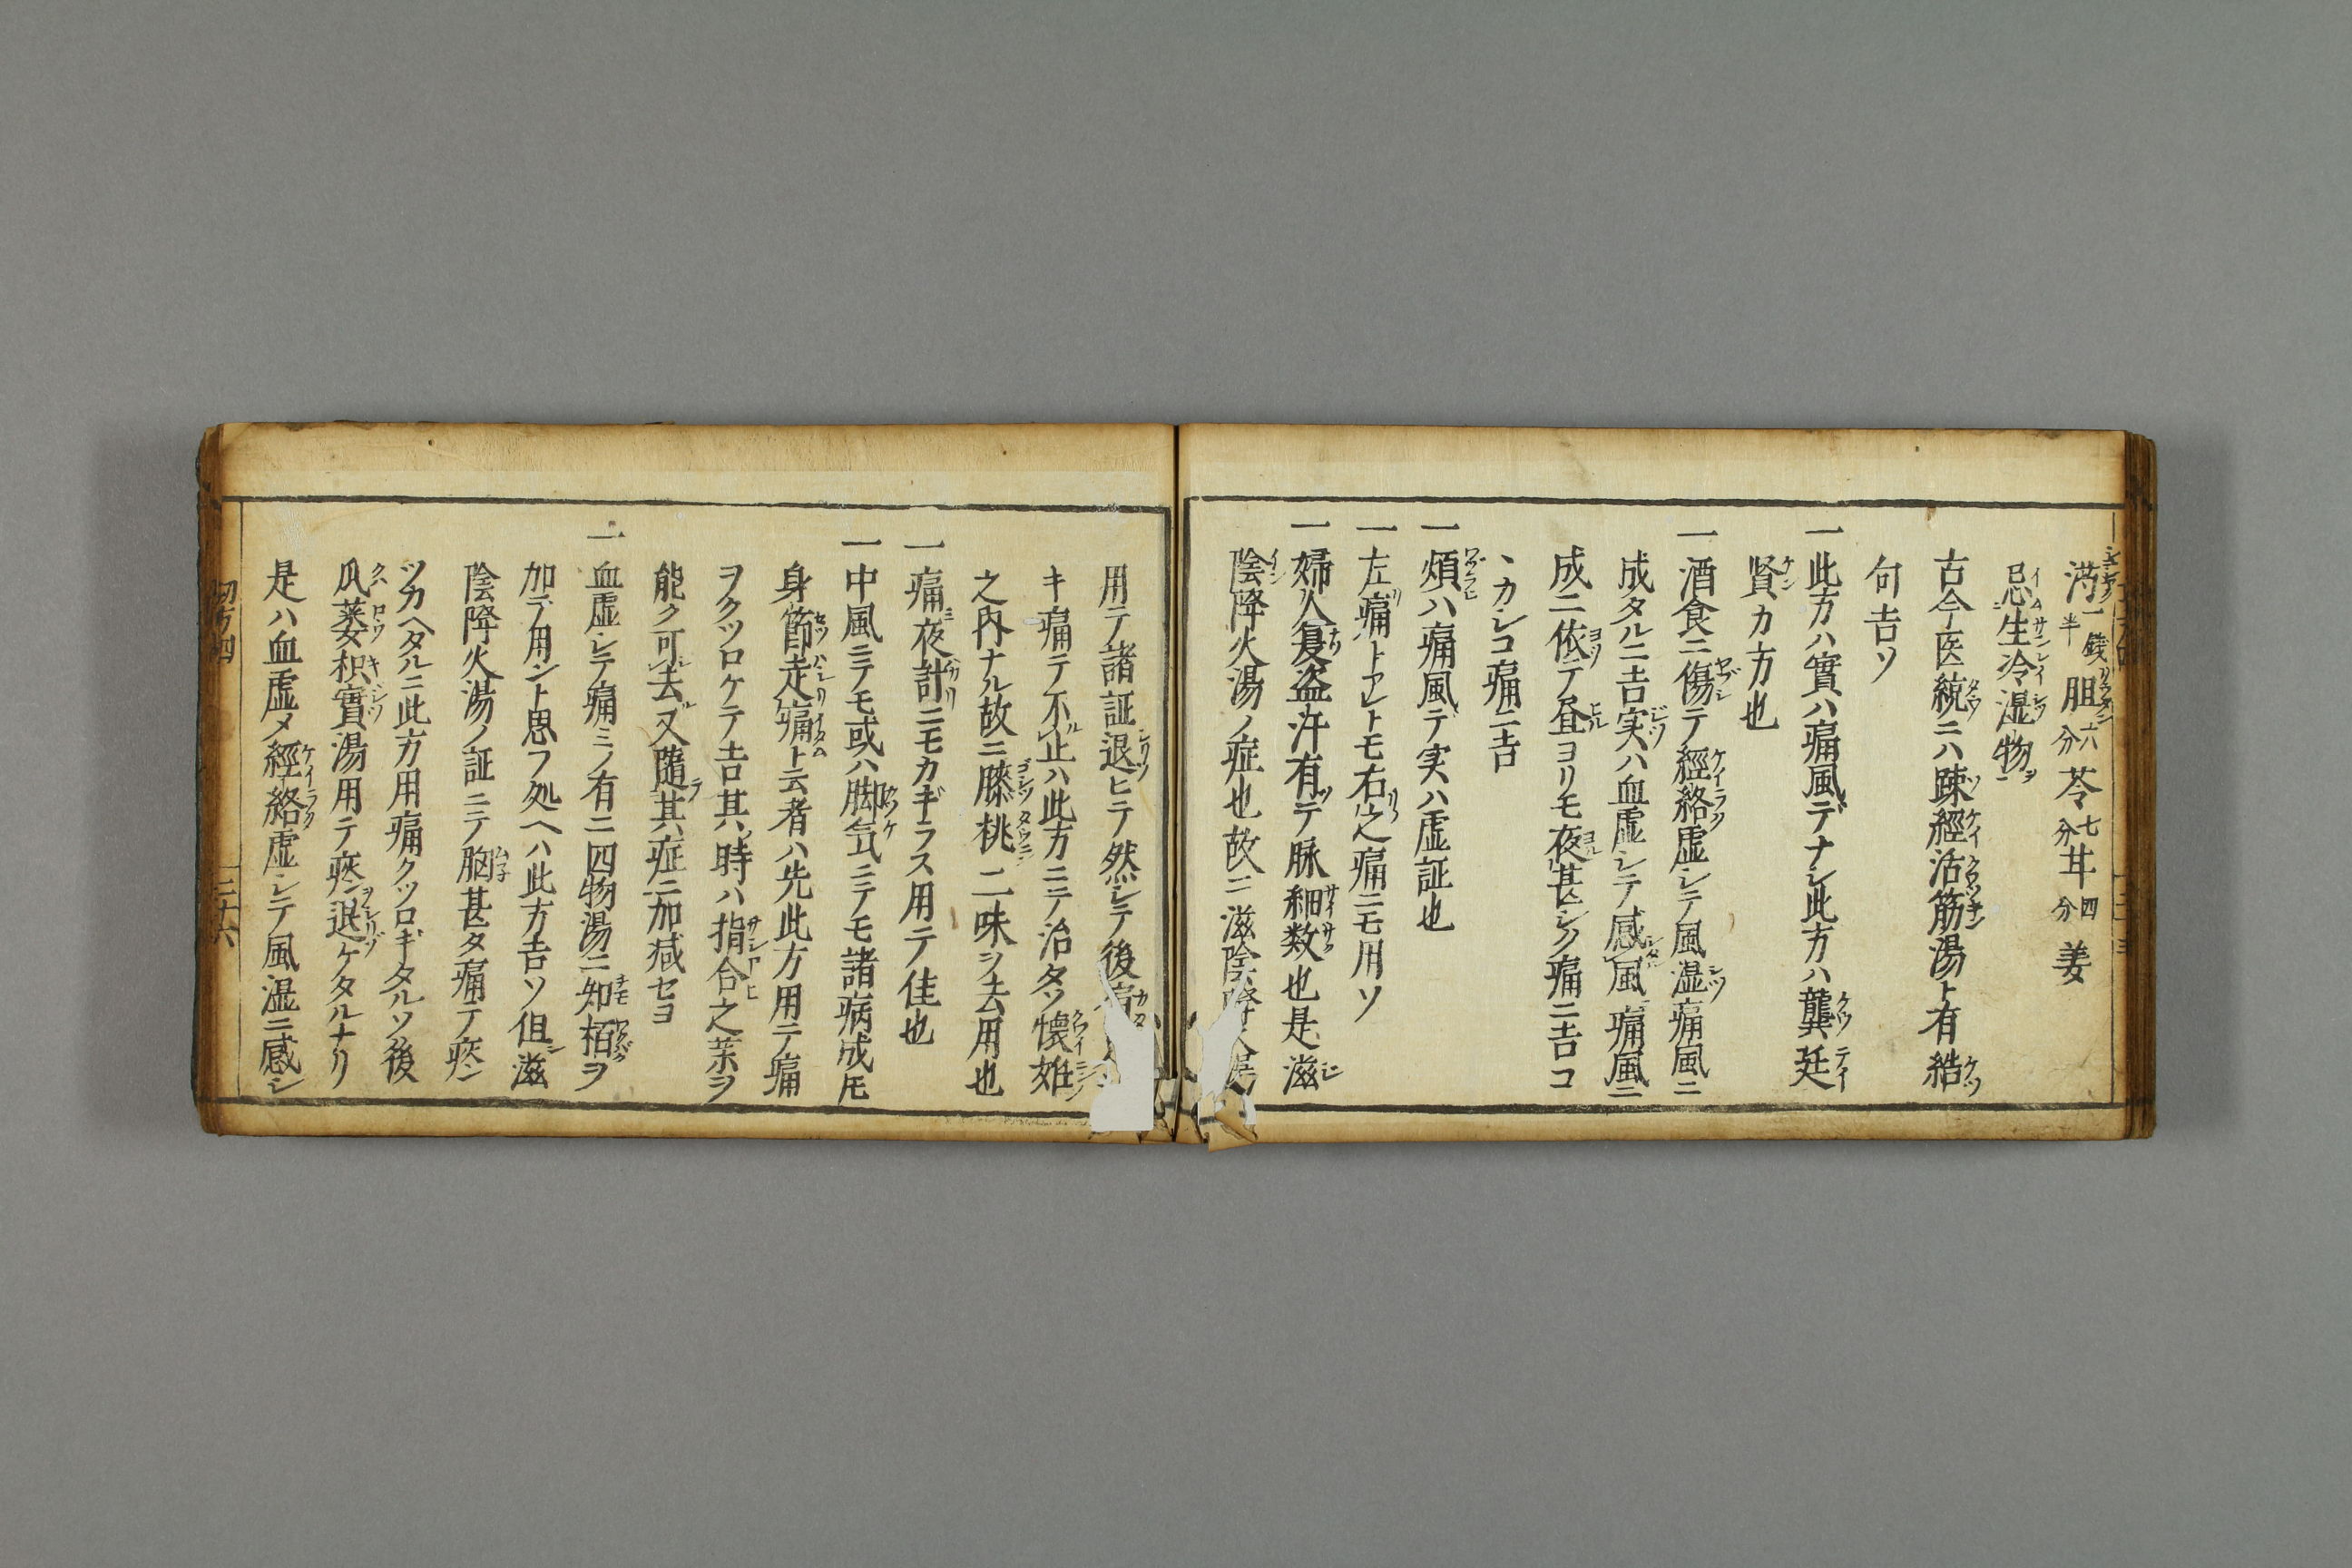 芍一錢半胆六分苓七分甘四分姜
忌生冷湿物ヲ
古今医統ニハ疎經活筋湯ト有結
句吉ソ
一此方ハ實ハ痛風デナシ此方ハ龔廷
賢カ方也
一酒食ニ傷テ經絡虚シテ風湿痛風ニ
成タルニ吉実ハ血虚シテ感風痛風ニ
成ニ依テ昼ヨリモ夜甚シク痛ニ吉コ
ヽカシコ痛ニ吉
一煩ハ痛風テ実ハ虚証也
一左痛トアレトモ右之痛ニモ用ソ
一婦人夏盗汗有テ脉細数也是滋
陰降火湯ノ症也故ニ滋陰降火湯
用テ諸証退ヒテ然シテ後
キ痛テ不止ハ此方ニテ治タソ懐姙
之内ナル故ニ膝桃二味ヲ去用也
一痛夜計ニモカギラス用テ佳也
一中風ニテモ或ハ脚気ニテモ諸病成モ
身節走痛ト云者ハ先此方用テ痛
ヲクツロケテ吉其時ハ指合之薬ヲ
能ク可去又随其症ニ加减セヨ
一血虚シテ痛ミノ有ニ四物湯ニ知栢ヲ
加デ用ント思フ処ヘハ此方吉ソ但滋
陰降火湯ノ証ニテ胸甚タ痛テ痰ン
ツカヘタルニ此方用痛クツロギタルソ後
瓜蔞枳實湯用テ痰ン退ケタルナリ
是ハ血虚メ經絡虚シテ風湿ニ感シ
切方四
三十六